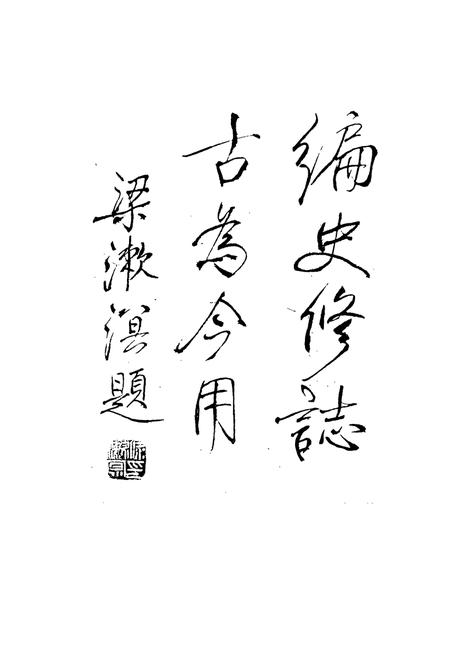 編史修誌
古為今用
梁漱溟題